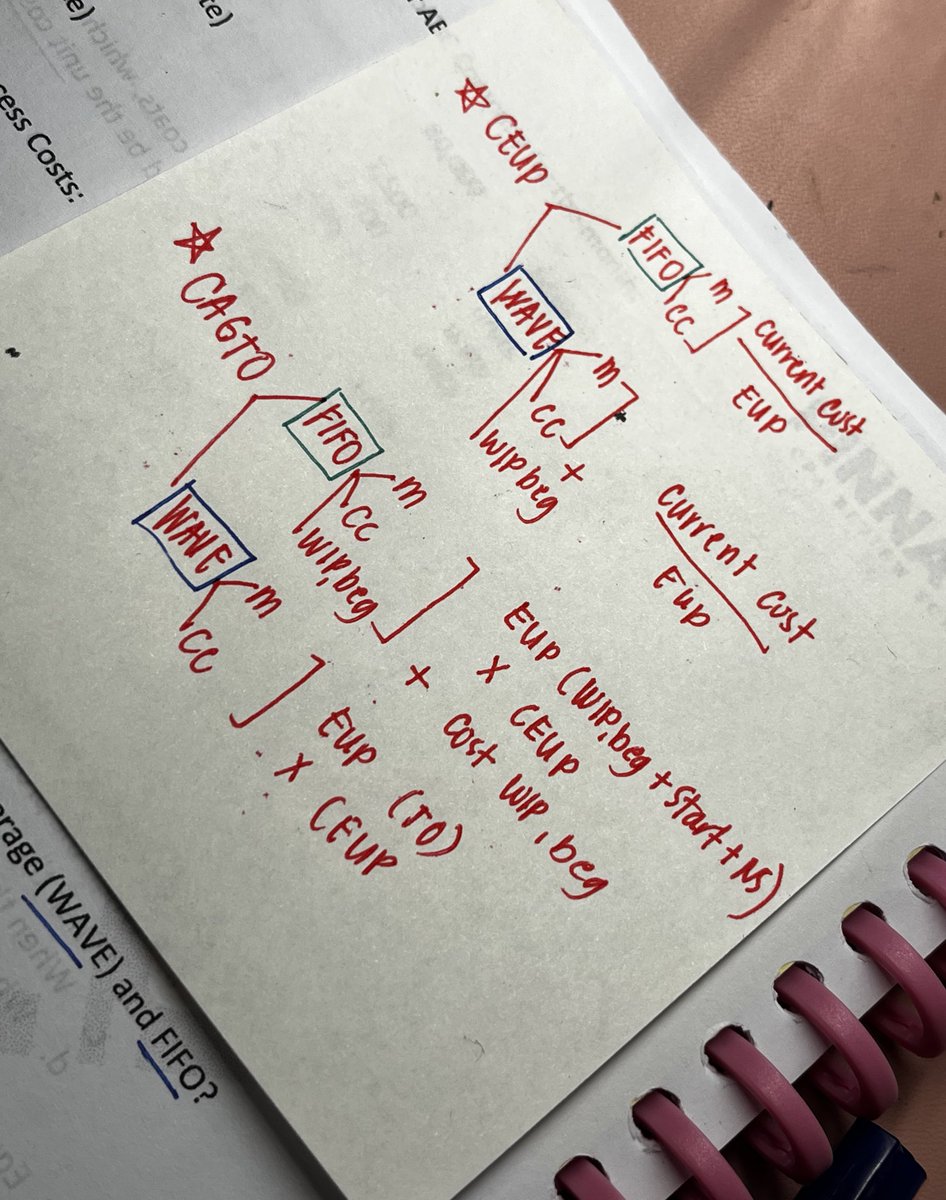 te)
e)
cess Costs:
☆ CEUP
FIFO
m
CC
current cost
EUP
WAVE
m
CC
+
WIP, beg
current cost
EUP
☆ CAGTO
FIFO
m
CC
WIP, beg
EUP (WIP, beg + start + NS)
x CEUP
+ cost WIP, beg
WAVE
m
CC
EUP (TO)
x CEUP
erage (WAVE) and FIFO?